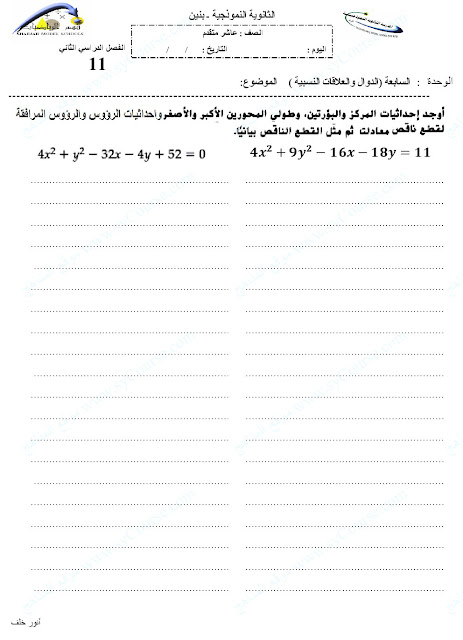 الثانوية النموذجية - بنين
الصف : عاشر متقدم
اليوم : التاريخ : / /
SHARJAH MODEL SCHOOLS
الفصل الدراسي الثاني
11
الوحدة : السابعة (الدوال والعلاقات النسبية ) الموضوع:
أوجد إحداثيات المركز والبؤرتين، وطولي المحورين الأكبر والأصغر واحداثيات الرؤوس والرؤوس المرافقة
لقطع ناقص معادلت ثم مثل القطع الناقص بيانيًا.
4x² + 9y² − 16x − 18y = 11
4x² + y² − 32x − 4y + 52 = 0
أنور خلف